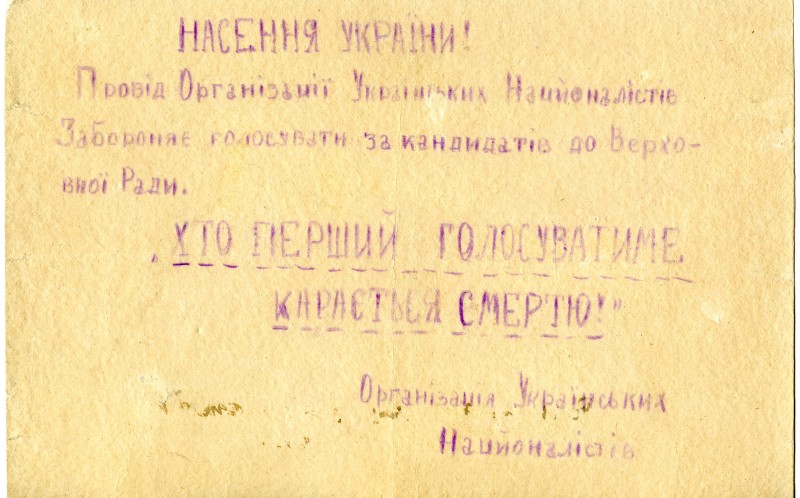 НАСЕННЯ УКРАЇНИ!
Провід Організації Українських Націоналістів
Забороняє голосувати за кандидатів до Верхо-
вної Ради.
„ХТО ПЕРШИЙ ГОЛОСУВАТИМЕ
КАРАЄТЬСЯ СМЕРТЮ!"
Організація Українських
Націоналістів